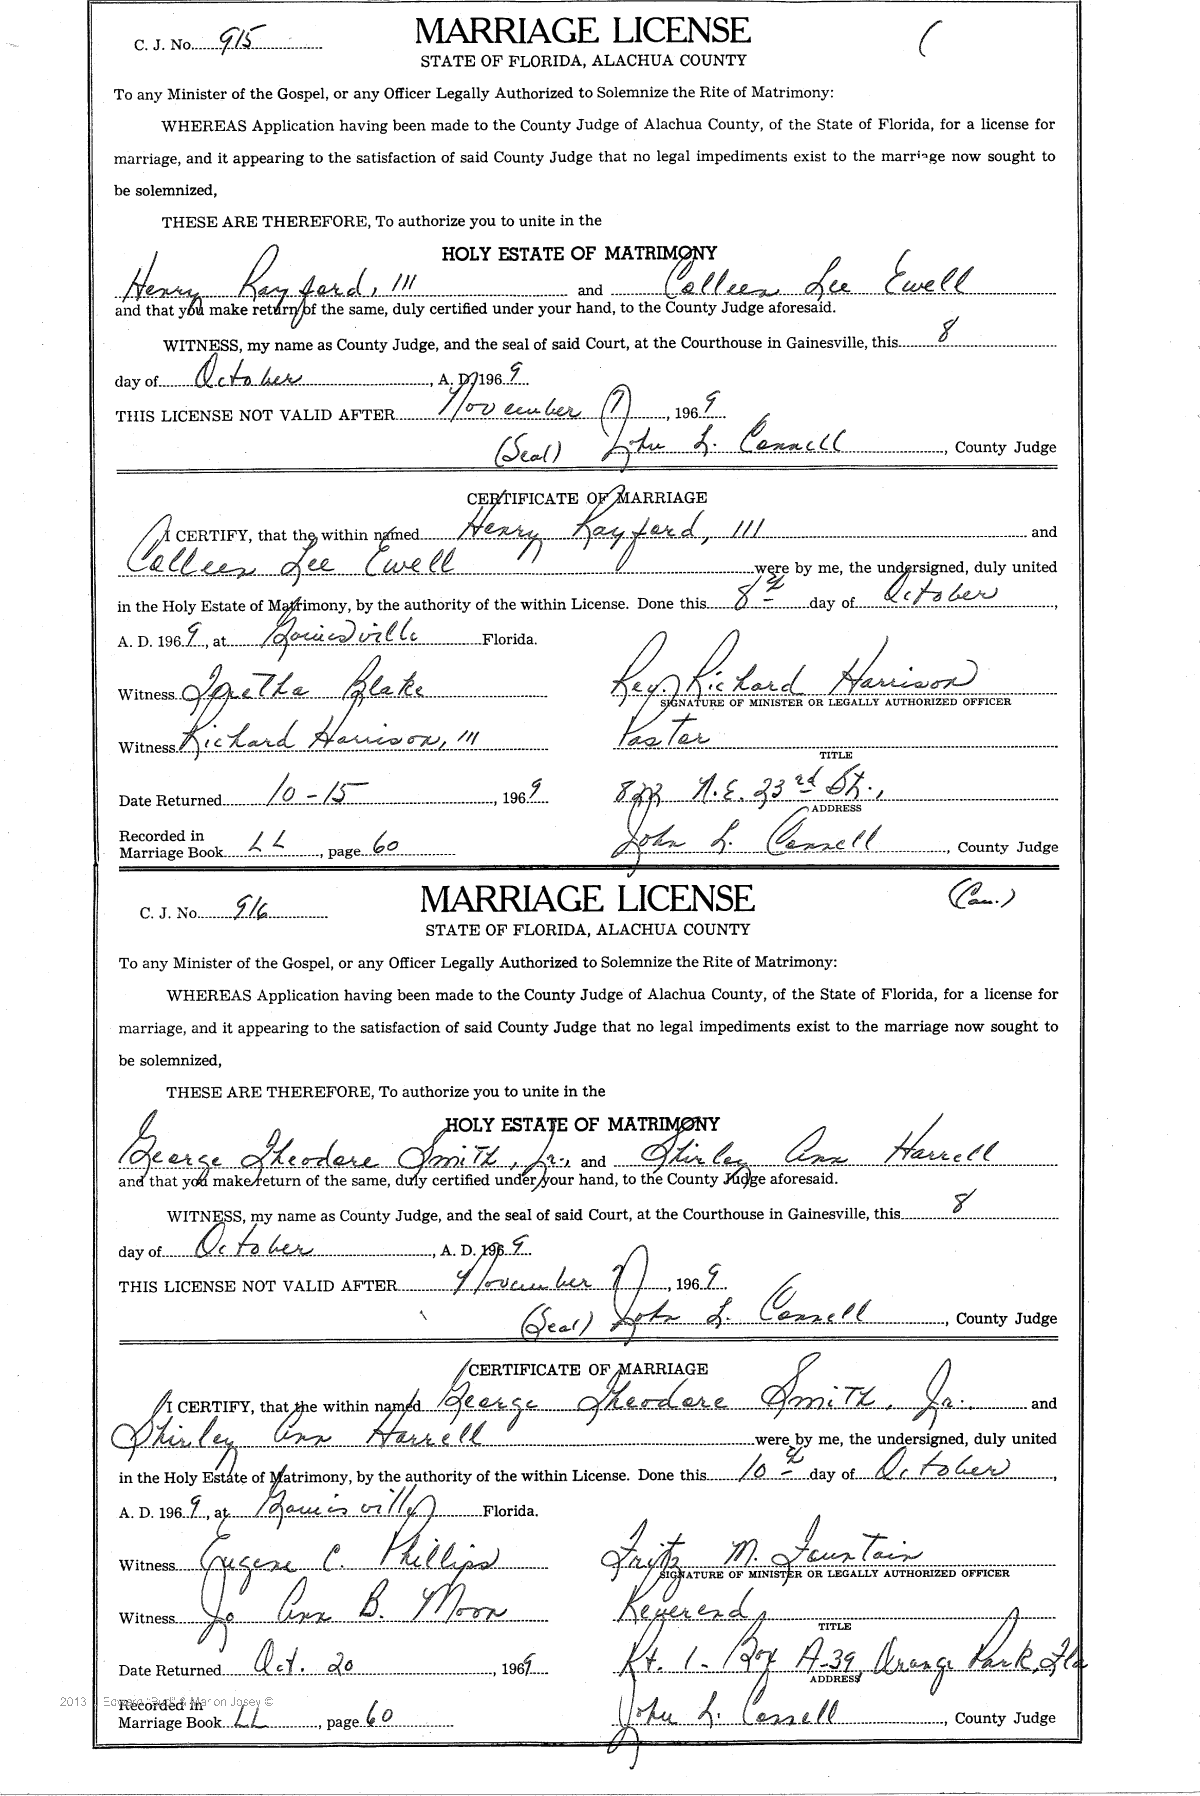 C. J. No. 915
MARRIAGE LICENSE
STATE OF FLORIDA, ALACHUA COUNTY
To any Minister of the Gospel, or any Officer Legally Authorized to Solemnize the Rite of Matrimony:
WHEREAS Application having been made to the County Judge of Alachua County, of the State of Florida, for a license for
marriage, and it appearing to the satisfaction of said County Judge that no legal impediments exist to the marriage now sought to
be solemnized,
THESE ARE THEREFORE, To authorize you to unite in the
HOLY ESTATE OF MATRIMONY
Henry Rayford, III and Colleen Lee Ewell
and that you make return of the same, duly certified under your hand, to the County Judge aforesaid.
WITNESS, my name as County Judge, and the seal of said Court, at the Courthouse in Gainesville, this 8
day of October, A. D. 1969
THIS LICENSE NOT VALID AFTER November 7, 1969
(Seal) John L. Connell, County Judge
CERTIFICATE OF MARRIAGE
I CERTIFY, that the within named Henry Rayford, III and
Colleen Lee Ewell were by me, the undersigned, duly united
in the Holy Estate of Matrimony, by the authority of the within License. Done this 8th day of October,
A. D. 1969, at Gainesville Florida.
Witness Blake Rev. Richard Harrison
SIGNATURE OF MINISTER OR LEGALLY AUTHORIZED OFFICER
Witness Richard Harrison, III Pastor
TITLE
Date Returned 10-15, 1969 822 N.E. 23rd St.,
ADDRESS
Recorded in
Marriage Book LL, page 60 John L. Connell, County Judge
C. J. No. 916
MARRIAGE LICENSE
(Cau.)
STATE OF FLORIDA, ALACHUA COUNTY
To any Minister of the Gospel, or any Officer Legally Authorized to Solemnize the Rite of Matrimony:
WHEREAS Application having been made to the County Judge of Alachua County, of the State of Florida, for a license for
marriage, and it appearing to the satisfaction of said County Judge that no legal impediments exist to the marriage now sought to
be solemnized,
THESE ARE THEREFORE, To authorize you to unite in the
HOLY ESTATE OF MATRIMONY
George Theodore Smith, Jr., and Shirley Ann Harrell
and that you make return of the same, duly certified under your hand, to the County Judge aforesaid.
WITNESS, my name as County Judge, and the seal of said Court, at the Courthouse in Gainesville, this 8
day of October, A. D. 1969.
THIS LICENSE NOT VALID AFTER November 7, 1969
(Seal) John L. Connell, County Judge
CERTIFICATE OF MARRIAGE
I CERTIFY, that the within named George Theodore Smith, Jr. and
Shirley Ann Harrell were by me, the undersigned, duly united
in the Holy Estate of Matrimony, by the authority of the within License. Done this 10th day of October,
A. D. 1969, at Gainesville Florida.
Witness Eugene C. Phillips Fritz M. Fountain
SIGNATURE OF MINISTER OR LEGALLY AUTHORIZED OFFICER
Witness Jo Ann B. Moon Reverend
TITLE
Date Returned Oct. 20, 1969 Rt. 1 - Box A-39, Orange Park, Fla
ADDRESS
2013 Edward "Bud" & Marion Josey ©
Recorded in
Marriage Book LL, page 60 John L. Connell, County Judge